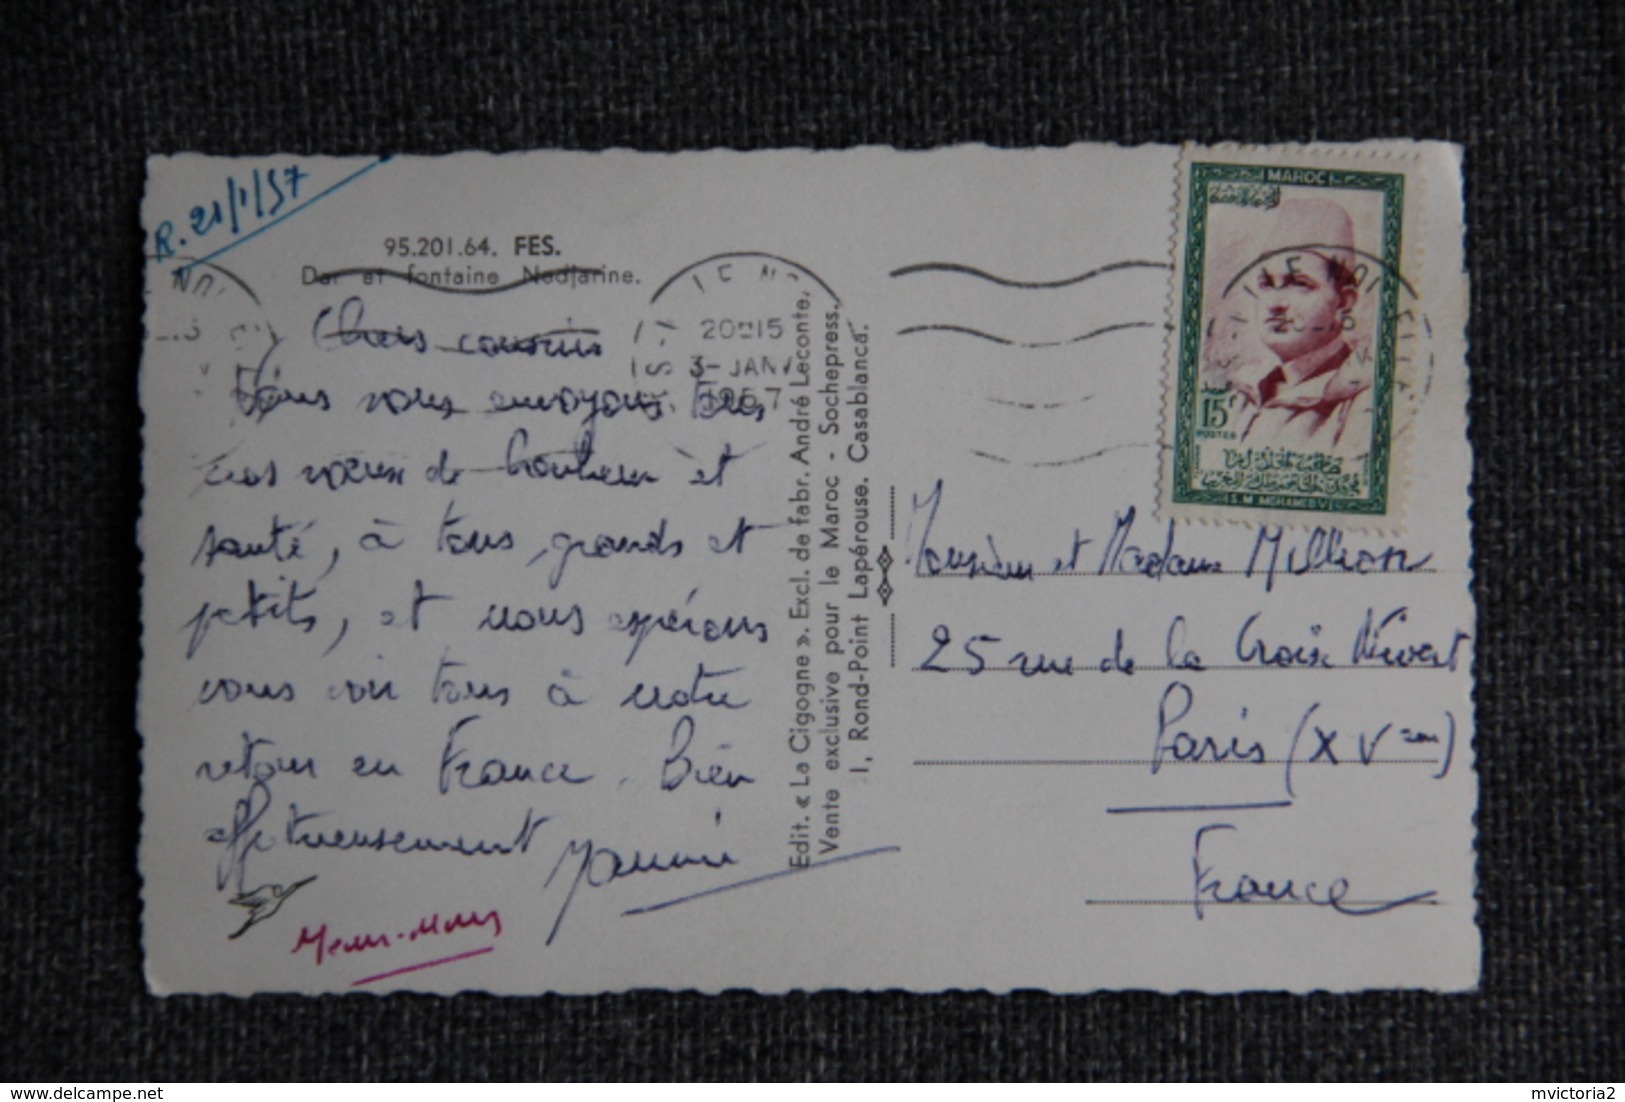 R. 21/1/57
95.201.64. FES.
Dar et fontaine Nedjarine.
Chers cousins
Nous vous envoyons tous
nos vœux de bonheur et
santé, à tous, grands et
petits, et nous espérons
vous voir tous à notre
retour en France. Bien
affectueusement
Edit. « La Cigogne ». Excl. de fabr. André Leconte.
Vente exclusive pour le Maroc - Sochepress.
1, Rond-Point Lapérouse. Casablanca.
20H15
3-JANV
1957
MAROC
15F
POSTES
S.M. MOHAMED V
Monsieur et Madame Million
25 rue de la Croix Nivert
Paris (XVème)
France
mvictoria2